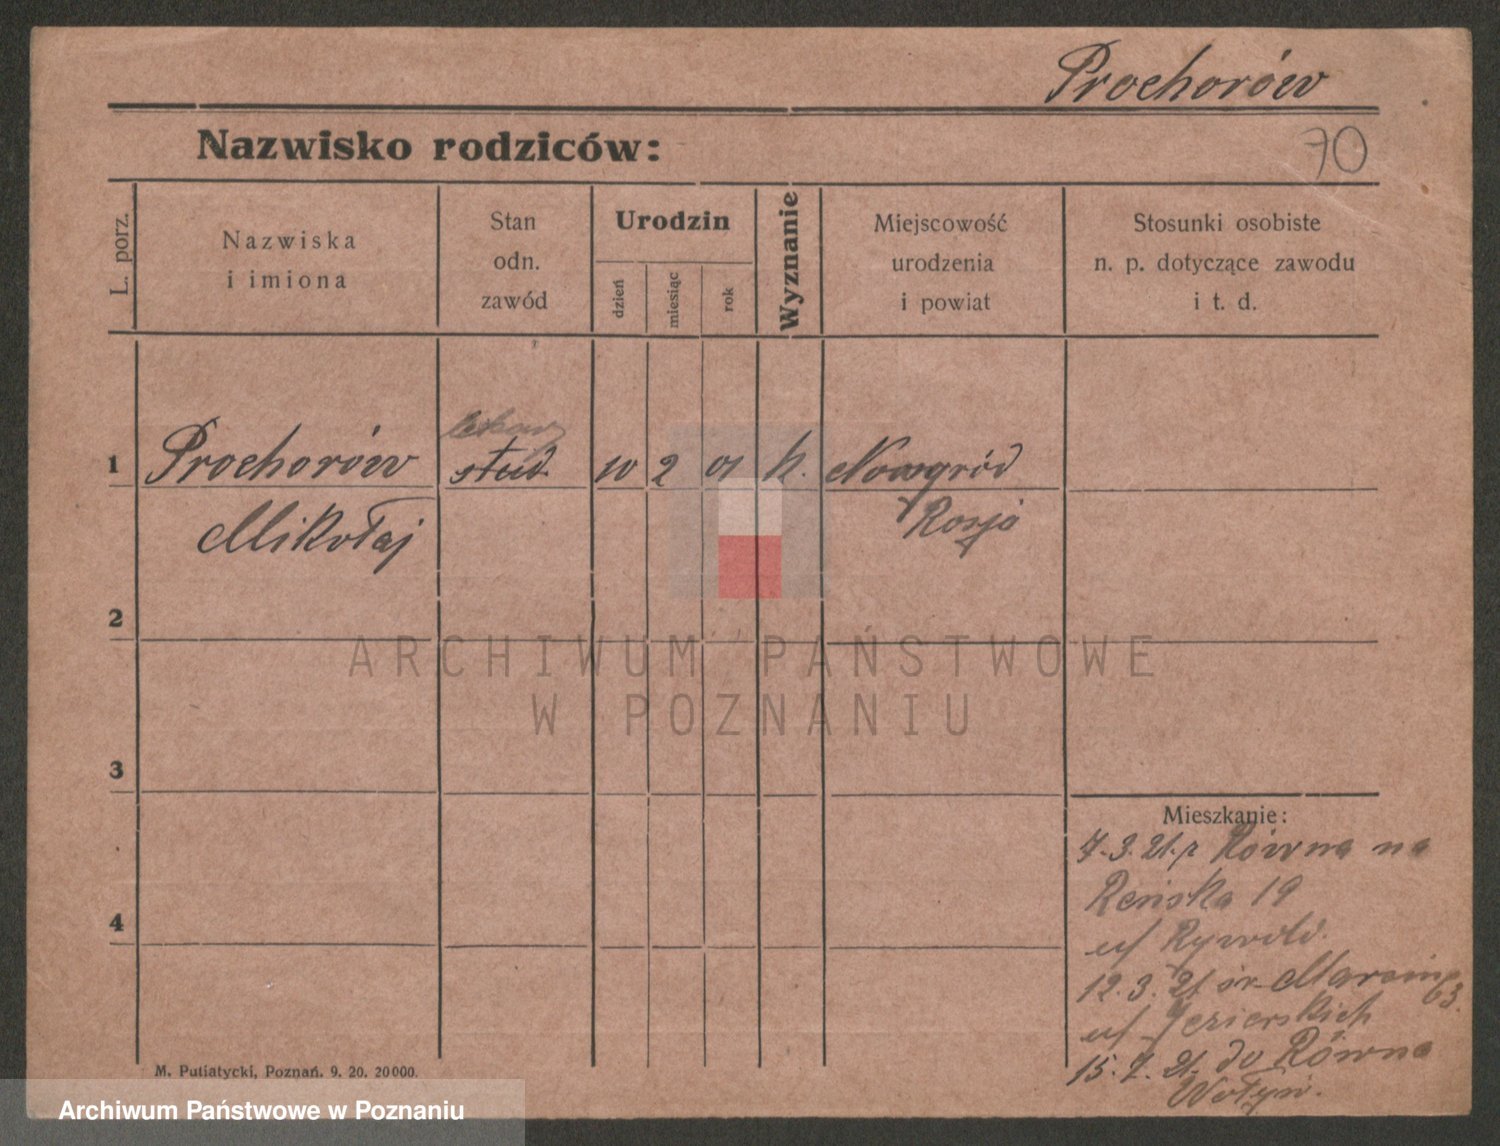 Prochorów
Nazwisko rodziców:
70
L. porz.
Nazwiska
i imiona
Stan
odn.
zawód
Urodzin
dzień
miesiąc
rok
Wyznanie
Miejscowość
urodzenia
i powiat
Stosunki osobiste
n. p. dotyczące zawodu
i t. d.
1
Prochorów
stud
10
2
01
k.
Nowgród
Mikołaj
Rosja
2
ARCHIWUM PAŃSTWOWE
W POZNANIU
3
Mieszkanie:
7.3.21. z Równa na
19
4
12.3.21 św. Marcin 63.
u/ Jezierskich
15.7.21. do Równa
Wołyń.
M. Putiatycki, Poznań. 9. 20. 20000.
Archiwum Państwowe w Poznaniu